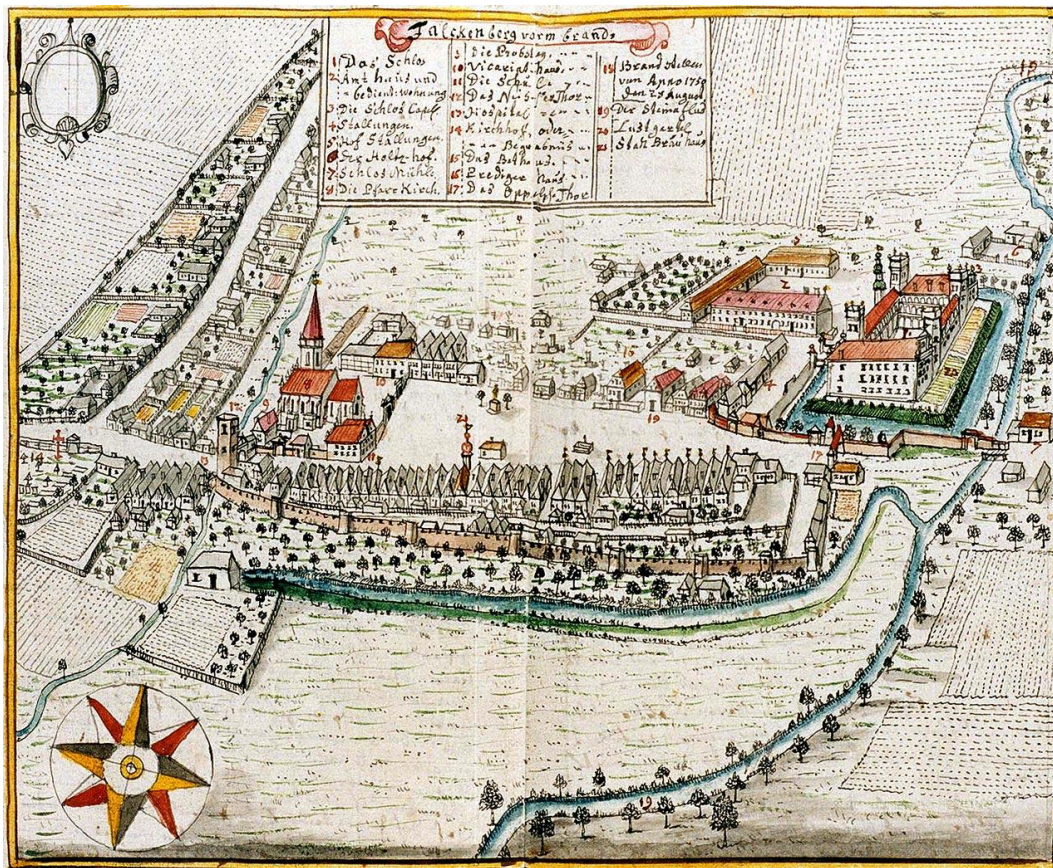 Falckenberg vorm brand
1 Das Schlos
2 Amt haus und
bediente wohnung
3 Die Schlos Capel
4 Stallungen.
5 Hof Stallungen.
6 Der Holtz hof.
7 Schlos Mühle
8 Die Pfar Kirch.
9 die Probstey
10 Vicariat haus
11 Die Schul
12 Das Thor
13 Hospital
14 Kirchhof, oder
Begräbnis
15 Das Bethaus
16 Prediger haus
17 Das Oppelsh Thor
18 Brand
von Anno
den August
19 Der Steinaflus
20 Lust garten
21 Stat Brau haus